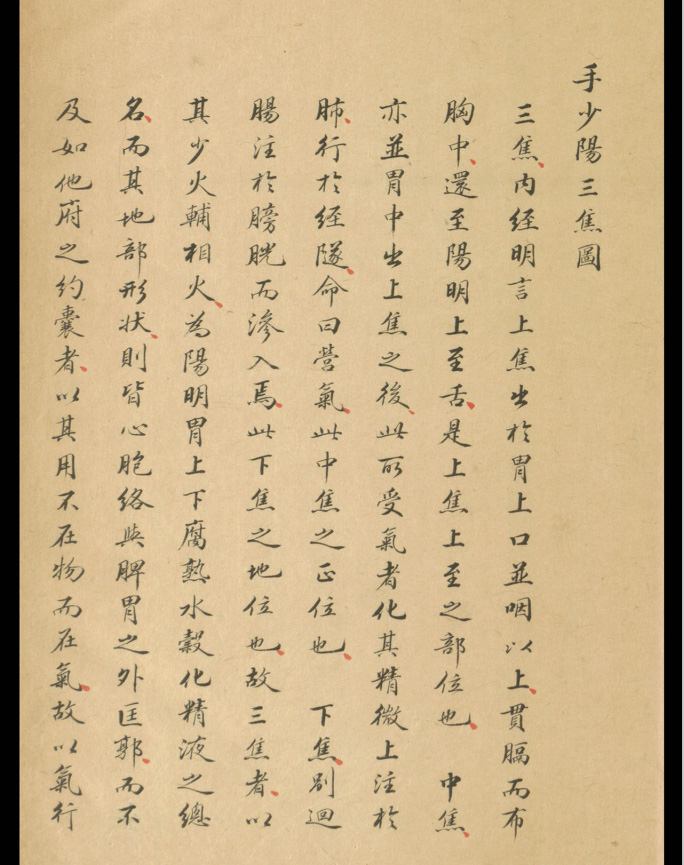 手少陽三焦圖
三焦內經明言上焦出於胃上口並咽以上貫膈而布
胸中還至陽明上至舌是上焦上至之部位也 中焦
亦並胃中出上焦之後此所受氣者化其精微上注於
肺行於經隧命曰營氣此中焦之正位也 下焦別迴
腸注於膀胱而滲入焉此下焦之地位也故三焦者以
其少火輔相火為陽明胃上下腐熟水穀化精液之總
名而其地部形狀則皆心胞絡與脾胃之外匡郭而不
及如他府之約囊者以其用不在物而在氣故以氣行